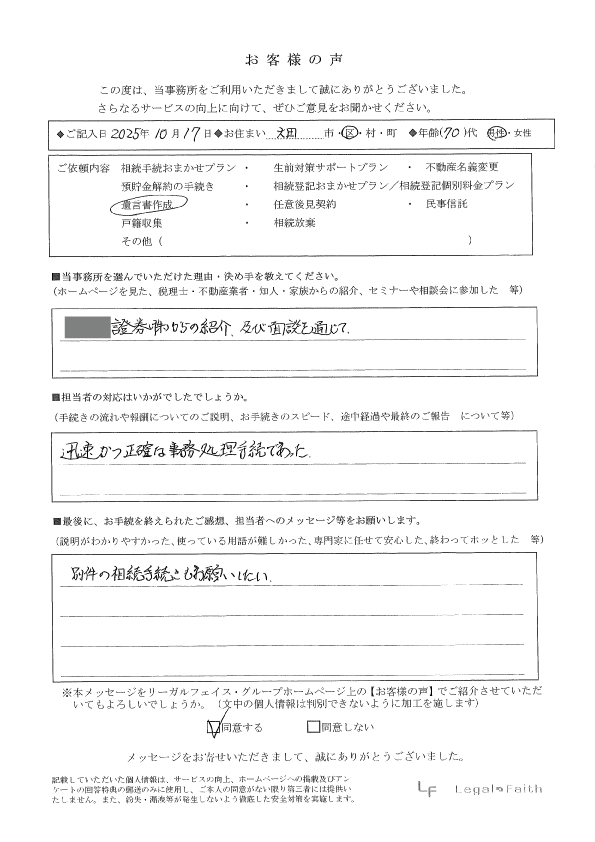 お客様の声
この度は、当事務所をご利用いただきまして誠にありがとうございました。
さらなるサービスの向上に向けて、ぜひご意見をお聞かせください。
◆ご記入日 2025年 10月 17日 ◆お住まい 市・区・村・町 ◆年齢(70)代 男性・女性
ご依頼内容 相続手続おまかせプラン ・ 生前対策サポートプラン ・ 不動産名義変更
預貯金解約の手続き ・ 相続登記おまかせプラン／相続登記個別料金プラン
遺言書作成 ・ 任意後見契約 ・ 民事信託
戸籍収集 ・ 相続放棄
その他（ ）
■当事務所を選んでいただけた理由・決め手を教えてください。
（ホームページを見た、税理士・不動産業者・知人・家族からの紹介、セミナーや相談会に参加した 等）
證券 からの紹介、及び面談を通じて、
■担当者の対応はいかがでしたでしょうか。
（手続きの流れや報酬についてのご説明、お手続きのスピード、途中経過や最終のご報告 について等）
迅速かつ正確な事務処理手続であった。
■最後に、お手続を終えられたご感想、担当者へのメッセージ等をお願いします。
（説明がわかりやすかった、使っている用語が難しかった、専門家に任せて安心した、終わってホッとした 等）
別件の相続手続きもお願いしたい。
※本メッセージをリーガルフェイス・グループホームページ上の【お客様の声】でご紹介させていただ
いてもよろしいでしょうか。（文中の個人情報は判別できないように加工を施します）
同意する 同意しない
メッセージをお寄せいただきまして、誠にありがとうございました。
記載していただいた個人情報は、サービスの向上、ホームページへの掲載及びアン
ケートの回答特典の郵送のみに使用し、ご本人の同意がない限り第三者には提供い
たしません。また、紛失・漏洩等が発生しないよう徹底した安全対策を実施します。
LF Legal Faith